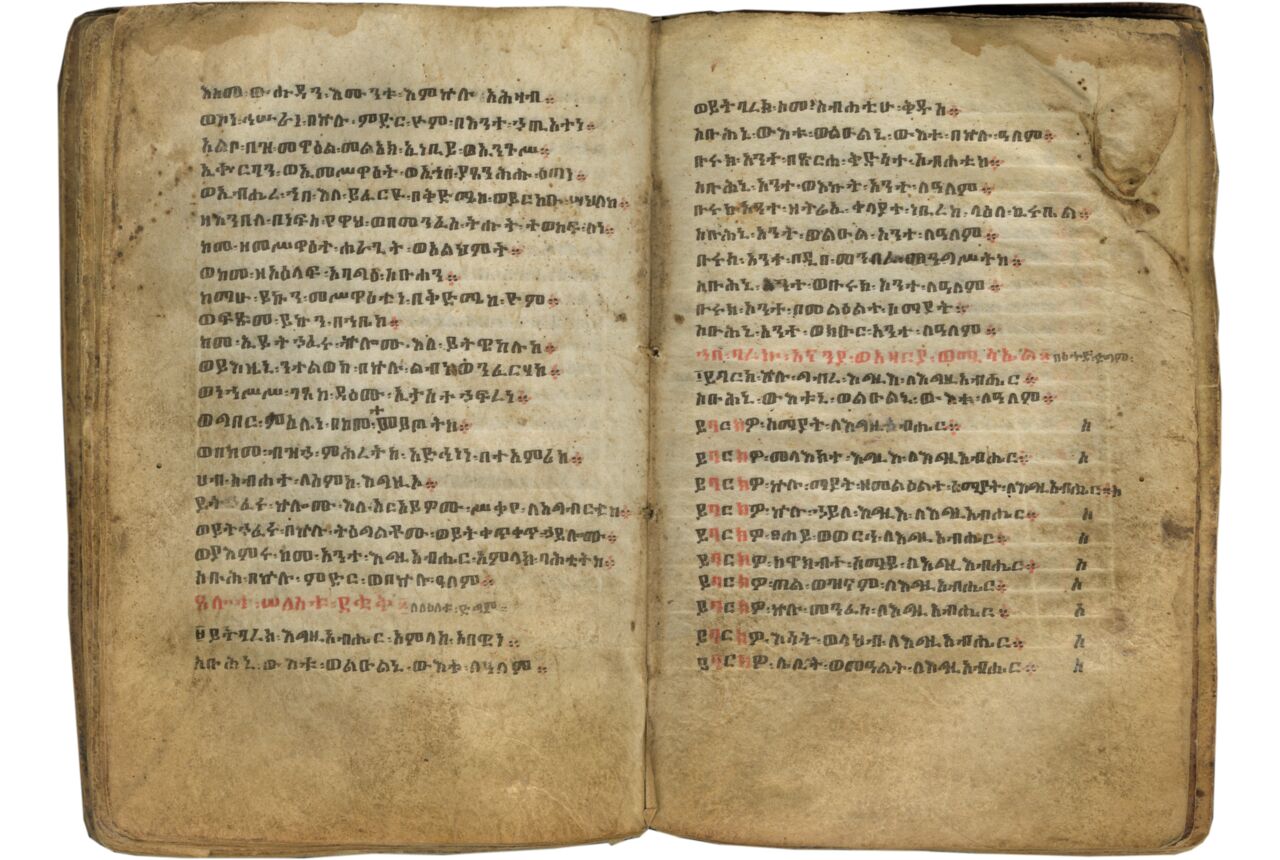 እስመ፡ውሑዳን፡እሙንቱ፡እምኵሉ፡አሕዛብ፨
ወኮነ፡ኅሡራነ፡በኵሉ፡ምድር፡ዮም፡በእንተ፡ኃጢአትነ፨
አልቦ፡በዝ፡መዋዕል፡መልአክ፡ኢነቢይ፡ወኢንጉሥ፨
ኢቍርባን፡ወኢመሥዋዕት፡ወኢኀበ፡ያዐንሕሑ፡ዕጣነ፨
ወኢብሔረ፡ኀበ፡እለ፡ይፈርዩ፡በቅድሜከ፡ወይርከቡ፡ሣህለከ፨
ዘእንበለ፡በነፍስ፡የዋህ፡ወበመንፈስ፡ትሑት፡ተወከፍ፡ስነ፨
ከመ፡ዘመሥዋዕት፡ሐራጊት፡ወአልህምት፨
ወከመ፡ዘአዕላፍ፡አባግዕ፡ስቡሐን፨
ከማሁ፡ይኩን፡መሥዋዕቲነ፡በቅድሜከ፡ዮም፨
ወፍጹመ፡ይኩን፡በኀቤከ፨
ከመ፡ኢይትኃፈሩ፡ኵሎሙ፡እለ፡ይትዌከሉ፡ከ፨
ወይእዜኒ፡ንተልወከ፡በኵሉ፡ልብነ፡ወንፈርሃከ፨
ወነኀሥሥ፡ገጸከ፡ዳዕሙ፡ኢታስተኃፍረነ፨
ወግበር፡ምስሌነ፡በከመ፡
ወበከመ፡ብዝኃ፡ምሕረትከ፡አድኅነነ፡በተአምሪከ፨
ሀብ፡ስብሐተ፡ለስምከ፡እግዚኦ፨
ይትኃፈሩ፡ኵሎሙ፡እለ፡አርአይዎሙ፡ሥቃየ፡ለአግብርቲከ፨
ወይትኃፈሩ፡በኵሉ፡ትዕግልቶሙ፡ወይትቀጥቀጥ፡ኃይሎሙ፨
ወያእምሩ፡ከመ፡አንተ፡እግዚአብሔር፡አምላክ፡ባሕቲትከ፨
ስቡሕ፡በኵሉ፡ምድር፡ወበኵሉ፡ዓለም፨
ጸሎተ፡ሠለስቱ፡ደቂቅ፨
ይትባረክ፡እግዚአብሔር፡አምላከ፡አበዊነ፨
ስቡሕኒ፡ውእቱ፡ወልዑልኒ፡ውእቱ፡ለዓለም፨
ወይትባረክ፡ስመ፡ስብሐቲሁ፡ቅዱስ፨
ስቡሕኒ፡ውእቱ፡ወልዑልኒ፡ውእቱ፡በኵሉ፡ዓለም፨
ቡሩክ፡አንተ፡በጽርሐ፡ቅድሳተ፡ስብሐቲከ፨
ስቡሕኒ፡አንተ፡ወእኩት፡አንተ፡ለዓለም፨
ቡሩክ፡አንተ፡ዘትሬኢ፡ቀላያተ፡ነቢረከ፡ላዕለ፡ኪሩቤል፨
ስቡሕኒ፡አንተ፡ወልዑል፡አንተ፡ለዓለም፨
ቡሩክ፡አንተ፡በዲበ፡መንበረ፡መንግሥትከ፨
ስቡሕኒ፡አንተ፡ወቡሩክ፡አንተ፡ለዓለም፨
ቡሩክ፡አንተ፡በመልዕልተ፡ሰማያት፨
ስቡሕኒ፡አንተ፡ወክቡር፡አንተ፡ለዓለም፨
ኀበ፡ባረኩ፡አናንያ፡ወአዛርያ፡ወሚሳኤል፨
ይባርክ፡ኵሉ፡ግብረ፡እግዚእ፡ለእግዚአብሔር፨
ስቡሕኒ፡ውእቱኒ፡ወልዑልኒ፡ውእቱ፡ለዓለም፨
ይባርክዎ፡ሰማያት፡ለእግዚአብሔር፨ ስ
ይባርክዎ፡መላእክተ፡እግዚእ፡ለእግዚአብሔር፨ ስ
ይባርክዎ፡ኵሉ፡ማያት፡ዘመልዕልተ፡ሰማያት፡ለእግዚአብሔር፨ ስ
ይባርክዎ፡ኵሉ፡ኃይለ፡እግዚእ፡ለእግዚአብሔር፨ ስ
ይባርክዎ፡ፀሐይ፡ወወርኅ፡ለእግዚአብሔር፨ ስ
ይባርክዎ፡ከዋክብተ፡ሰማይ፡ለእግዚአብሔር፨ ስ
ይባርክዎ፡ጠል፡ወዝናም፡ለእግዚአብሔር፨ ስ
ይባርክዎ፡ኵሉ፡መንፈስ፡ለእግዚአብሔር፨ ስ
ይባርክዎ፡እሳት፡ወላህብ፡ለእግዚአብሔር፨ ስ
ይባርክዎ፡ሌሊት፡ወመዓልት፡ለእግዚአብሔር፨ ስ